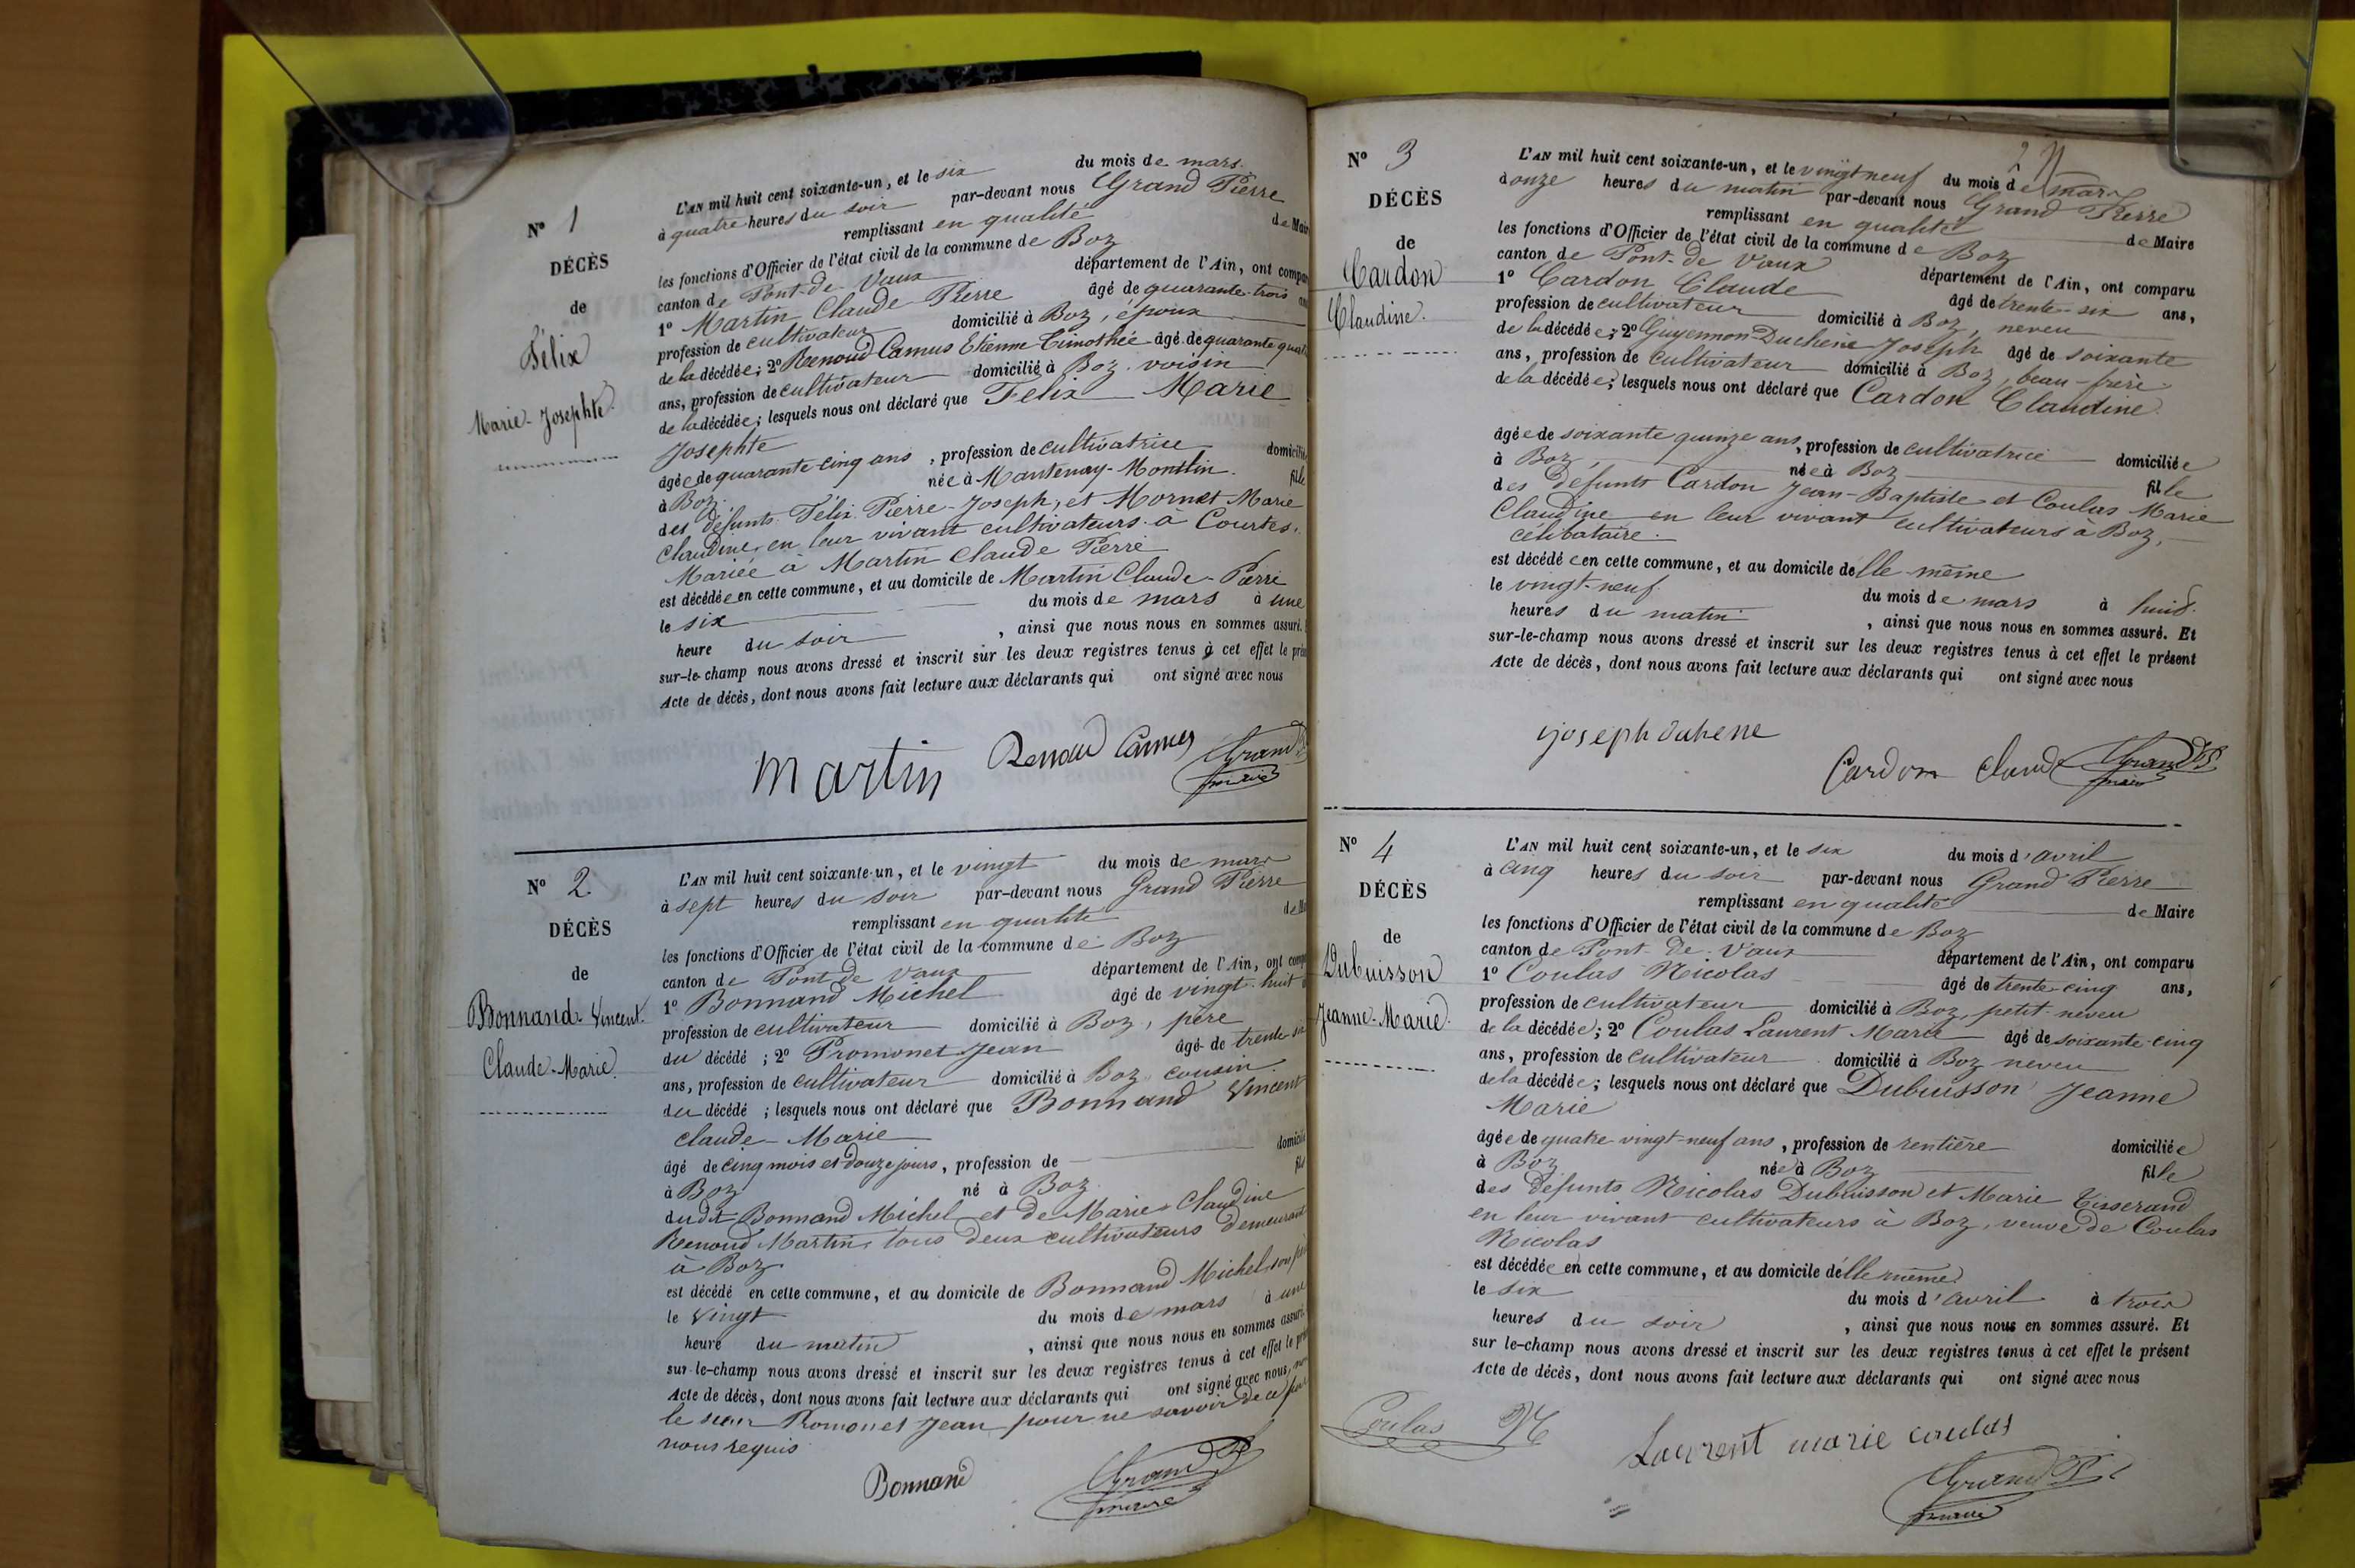 Nº 1
DÉCÈS
de
Félix
Marie-Josephte.
L'AN mil huit cent soixante-un, et le six du mois de mars.
à quatre heures du soir par-devant nous Grand Pierre
remplissant en qualité de Mair
les fonctions d'Officier de l'état civil de la commune de Boz
canton de Pont-de-Vaux département de l'Ain, ont compar
1º Martin Claude-Pierre âgé de quarante-trois an
profession de cultivateur domicilié à Boz, époux
de la décédée; 2º Renoud Camus Etienne Timothée âgé de quarante quat
ans, profession de cultivateur domicilié à Boz, voisin
de la décédée; lesquels nous ont déclaré que Félix Marie
Josephte
âgée de quarante cinq ans, profession de cultivatrice domicilié
à Boz. née à Mantenay-Montlin. fille
des défunts Félix Pierre-Joseph, et Mornet Marie
Claudine, en leur vivant cultivateurs à Courtes.
Mariée à Martin Claude Pierre
est décédée en cette commune, et au domicile de Martin Claude-Pierre
le six du mois de mars à une
heure du soir, ainsi que nous nous en sommes assuré.
sur-le-champ nous avons dressé et inscrit sur les deux registres tenus à cet effet le prés
Acte de décès, dont nous avons fait lecture aux déclarants qui ont signé avec nous
Martin Renoud Camus Grand P
maire
Nº 2.
DÉCÈS
de
Bonnand-Vincent.
Claude-Marie.
L'AN mil huit cent soixante-un, et le vingt du mois de mars
à sept heures du soir par-devant nous Grand Pierre
remplissant en qualité de Ma
les fonctions d'Officier de l'état civil de la commune de Boz
canton de Pont de Vaux département de l'Ain, ont comp
1º Bonnand Michel âgé de vingt-huit
profession de cultivateur domicilié à Boz, père
du décédé; 2º Promonet Jean âgé de trente six
ans, profession de cultivateur domicilié à Boz cousin
du décédé; lesquels nous ont déclaré que Bonnand Vincent
Claude-Marie
âgé de cinq mois et douze jours, profession de domicilié
à Boz né à Boz fils
dudit Bonnand Michel et de Marie-Claudine
Renoud Martin, tous deux cultivateurs demeurant
à Boz
est décédé en cette commune, et au domicile de Bonnand Michel son
le vingt du mois de mars à une
heure du matin, ainsi que nous nous en sommes assuré.
sur-le-champ nous avons dressé et inscrit sur les deux registres tenus à cet effet le pré
Acte de décès, dont nous avons fait lecture aux déclarants qui ont signé avec nous, non
le sieur Promonet Jean pour ne savoir de ce
nous requis
Bonnand Grand P
maire
Nº 3
DÉCÈS
de
Cardon
Claudine.
L'AN mil huit cent soixante-un, et le vingt neuf du mois de mars
à onze heures du matin par-devant nous Grand Pierre
remplissant en qualité de Maire
les fonctions d'Officier de l'état civil de la commune de Boz
canton de Pont-de Vaux département de l'Ain, ont comparu
1º Cardon Claude âgé de trente-six ans,
profession de cultivateur domicilié à Boz, neveu
de la décédée; 2º Guyennon-Duchene Joseph âgé de soixante
ans, profession de cultivateur domicilié à Boz, beau-frère
de la décédée; lesquels nous ont déclaré que Cardon Claudine
âgée de soixante quinze ans, profession de cultivatrice domiciliée
à Boz, née à Boz fille
des défunts Cardon Jean-Baptiste et Coulas Marie
Claudine en leur vivant cultivateurs à Boz,
célibataire.
est décédée en cette commune, et au domicile d'elle-même
le vingt-neuf du mois de mars à huit
heures du matin, ainsi que nous nous en sommes assuré. Et
sur-le-champ nous avons dressé et inscrit sur les deux registres tenus à cet effet le présent
Acte de décès, dont nous avons fait lecture aux déclarants qui ont signé avec nous
joseph duhene
Cardon Claude Grand P
maire
Nº 4
DÉCÈS
de
Dubuisson
Jeanne-Marie.
L'AN mil huit cent soixante-un, et le six du mois d'avril
à cinq heures du soir par-devant nous Grand Pierre
remplissant en qualité de Maire
les fonctions d'Officier de l'état civil de la commune de Boz
canton de Pont-de-Vaux département de l'Ain, ont comparu
1º Coulas Nicolas âgé de trente-cinq ans,
profession de cultivateur domicilié à Boz, petit-neveu
de la décédée; 2º Coulas Laurent Marie âgé de soixante-cinq
ans, profession de cultivateur domicilié à Boz neveu
de la décédée; lesquels nous ont déclaré que Dubuisson Jeanne
Marie
âgée de quatre vingt-neuf ans, profession de rentière domiciliée
à Boz née à Boz fille
des défunts Nicolas Dubuisson et Marie Tisserand
en leur vivant cultivateurs à Boz, veuve de Coulas
Nicolas
est décédée en cette commune, et au domicile d'elle même
le six du mois d'avril à trois
heures du soir, ainsi que nous nous en sommes assuré. Et
sur le-champ nous avons dressé et inscrit sur les deux registres tenus à cet effet le présent
Acte de décès, dont nous avons fait lecture aux déclarants qui ont signé avec nous
Coulas N
Laurent marie coulas
Grand P
maire